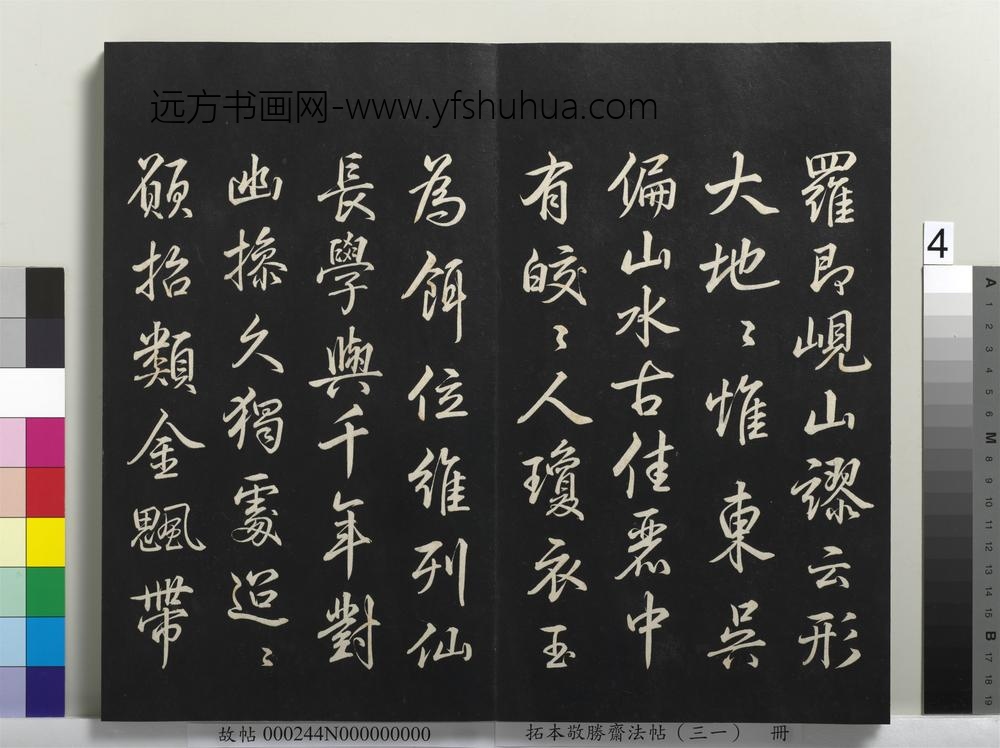 远方书画网-www.yfshuhua.com
羅即峴山謬云形
大地〻惟東吳
偏山水古佳麗中
有皎〻人瓊衣玉
為餌位維列仙
長學與千年對
幽操久獨處迢〻
願招類金颸帶
4
A
1
2
3
4
5
6
M
8
9
10
11
12
13
14
15
B
17
18
19
故帖 000244N000000000
拓本敬勝齋法帖（三一） 冊